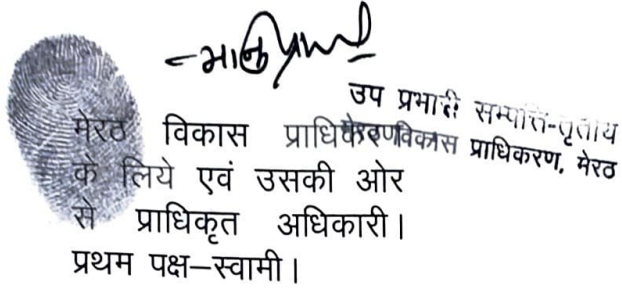 उप प्रभारी सम्पत्ति-तृतीय
मेरठ विकास प्राधिकरण, मेरठ
मेरठ विकास प्राधिकरण
के लिये एवं उसकी ओर
से प्राधिकृत अधिकारी।
प्रथम पक्ष–स्वामी।